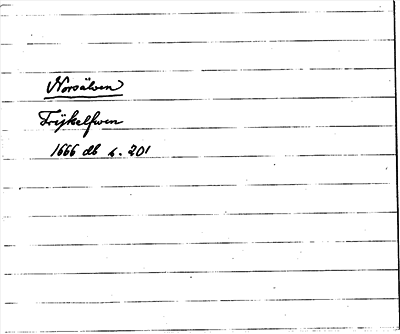 Norsälven
Frijkelfwen
1666 db s. 201